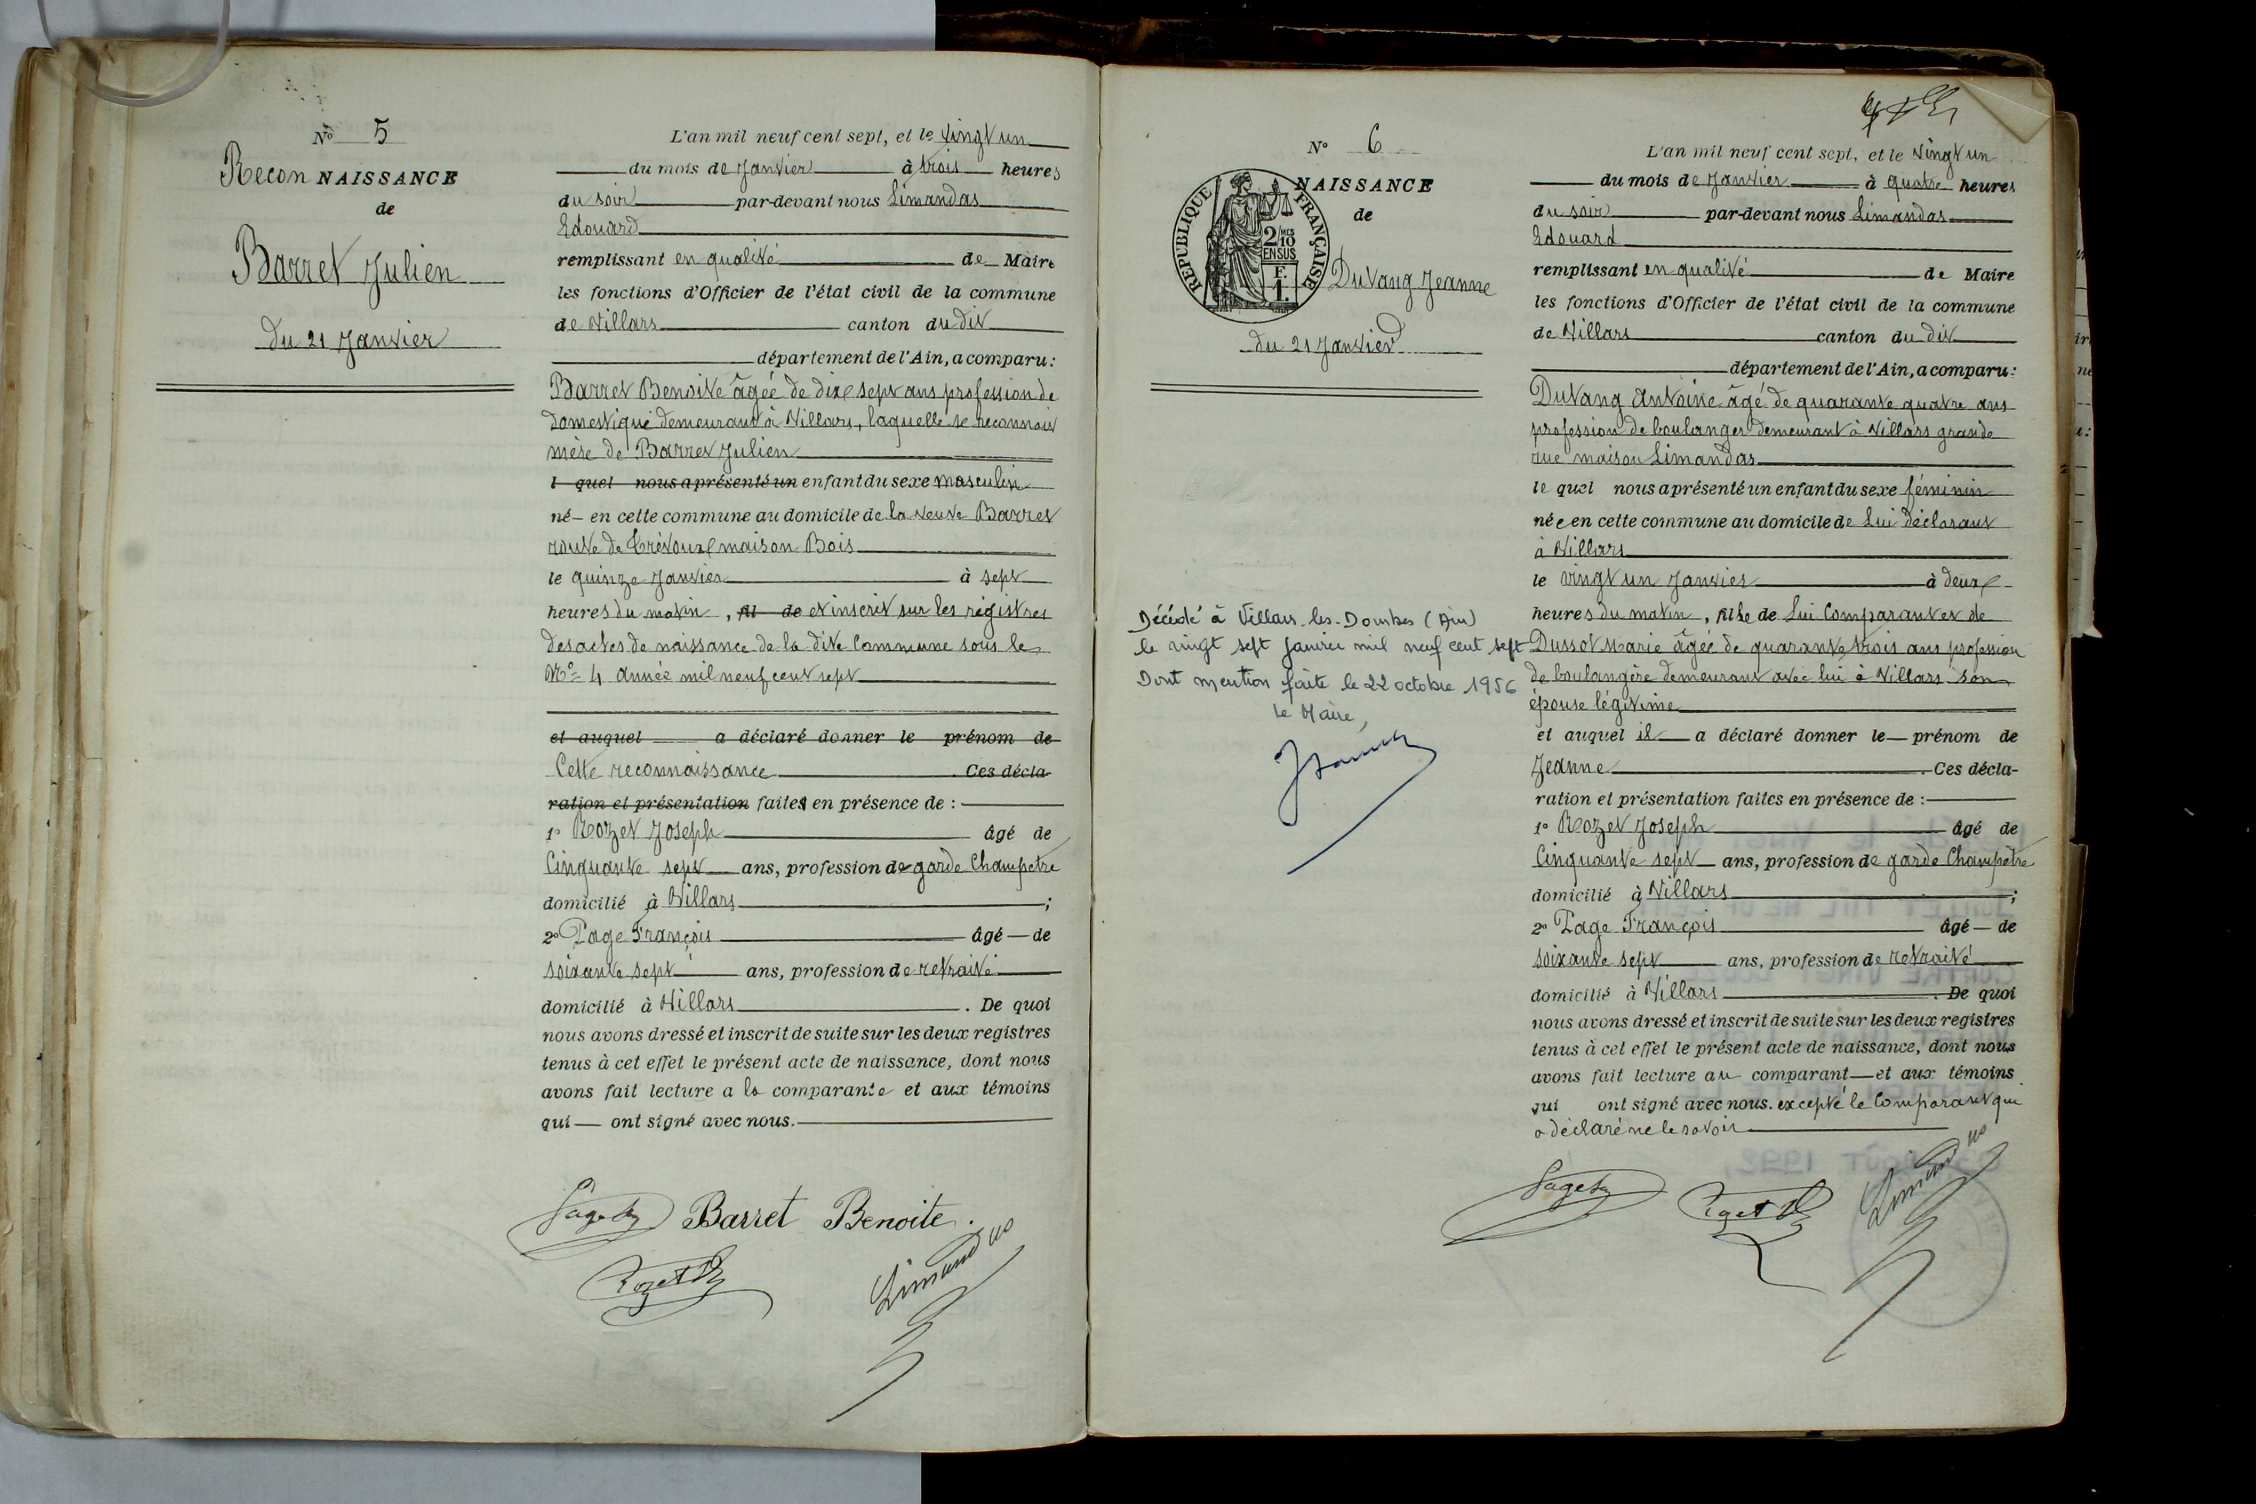 No 5
Recon NAISSANCE
de
Barret Julien
du 21 Janvier
L'an mil neuf cent sept, et le vingt un
du mois de Janvier à trois heures
du soir par-devant nous Limandas
Edouard
remplissant en qualité de Maire
les fonctions d'Officier de l'état civil de la commune
de Villars canton du dit
département de l'Ain, a comparu:
Barret Benoite âgée de dix sept ans profession de
domestique demeurant à Villars, laquelle se reconnait
mère de Barret Julien
l quel nous a présenté un enfant du sexe masculin
né en cette commune au domicile de la veuve Barret
route de Trévoux maison Bois
le quinze Janvier à sept
heures du matin, fil de et inscrit sur les régistres
des actes de naissance de la dite Commune sous le
No 4 année mil neuf cent sept
et auquel a déclaré donner le prénom de
Cette reconnaissance . Ces décla-
ration et présentation faites en présence de :
1o Rozet Joseph âgé de
Cinquante sept ans, profession de garde Champetre
domicilié à Villars ;
2o Page François âgé de
soixante sept ans, profession de retraité
domicilié à Villars . De quoi
nous avons dressé et inscrit de suite sur les deux registres
tenus à cet effet le présent acte de naissance, dont nous
avons fait lecture a la comparante et aux témoins
qui ont signé avec nous.
Barret Benoite.
Rozet
Limandas
No 6
NAISSANCE
de
RÉPUBLIQUE FRANÇAISE
2/10 MES
EN SUS
F.
1.
Dutang Jeanne
du 21 Janvier
Décédé à Villars-les-Dombes (Ain)
le vingt sept janvier mil neuf cent sept
Dont mention faite le 22 octobre 1956
Le Maire,
L'an mil neuf cent sept, et le vingt un
du mois de Janvier à quatre heures
du soir par-devant nous Limandas
Edouard
remplissant en qualité de Maire
les fonctions d'Officier de l'état civil de la commune
de Villars canton du dit
département de l'Ain, a comparu:
Dutang Antoine âgé de quarante quatre ans
profession de boulanger demeurant à Villars grande
rue maison Limandas
le quel nous a présenté un enfant du sexe féminin
née en cette commune au domicile de Lui déclarant
à Villars
le vingt un Janvier à deux
heures du matin, fille de Lui Comparant et de
Dussot Marie âgée de quarante trois ans profession
de boulangère demeurant avec lui à Villars son
épouse légitime
et auquel il a déclaré donner le prénom de
Jeanne . Ces décla-
ration et présentation faites en présence de :
1o Rozet Joseph âgé de
Cinquante sept ans, profession de garde Champetre
domicilié à Villars ;
2o Page François âgé de
soixante sept ans, profession de retraité
domicilié à Villars . De quoi
nous avons dressé et inscrit de suite sur les deux registres
tenus à cet effet le présent acte de naissance, dont nous
avons fait lecture au comparant et aux témoins
qui ont signé avec nous. excepté le Comparant qui
a déclaré ne le savoir
Limandas